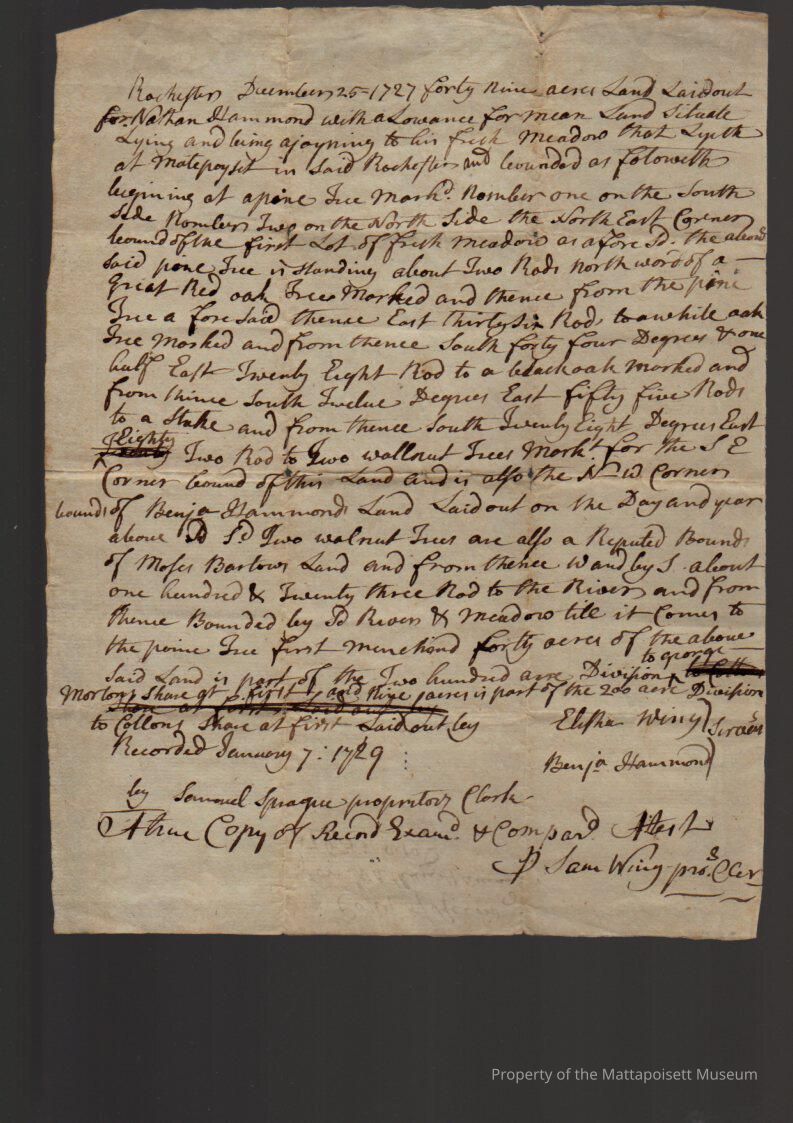 Rochester December 25 - 1727 forty nine acres Land Laid out
for Nathan Hammond with alowance for mean Land Situate
Lying and being ajoyning to his fresh meadow that Lyeth
at Matepoysit in Said Rochester and bounded as foloweth
begining at a pine Tree markd. Nomber one on the South
Side Nomber Two on the North Side the North East Corner
bound of the first Lot of fresh meadow as afore Sd. the above
said pine Tree is standing about Two Rods northword of a —
Great Red oak Tree Marked and thence from the pine
Tree a fore said thence East thirty Six Rod to a white oak
Tree marked and from thence South forty four Degrees & one
half East Twenty Eight Rod to a black oak marked and
from thince South Twelve Degrees East fifty five Rods
to a Stake and from thence South Twenty Eight Degrees East
Eighty
Two Rod to Two wallnut Trees Markt for the S E
Corner bound of this Land and is also the N - W Corner
bounds of Benja Hammonds Land Laid out on the Day and year
above Sd Sd Two walnut Trees are also a Reputed Bounds
of Moses Barlows Land and from thence W and by S. about
one hundred & Twenty three Rod to the River and from
thence Bounded by Sd River & meadow till it Comes to
the poine Tree first menchond forty acres of the above
to george
said Land is part of the Two hundred acre Division
Mortons Share at first and Nine acres is part of the 200 acre Division
to Collons Share at first Laid out by
Elisha Wing
Recorded January 7: 1729
Benja Hammond
by Samuel Sprague propritory Clark
A true Copy of Record Examd. & Compard. Attest
P Sam Wing pros. Cler
Property of the Mattapoisett Museum